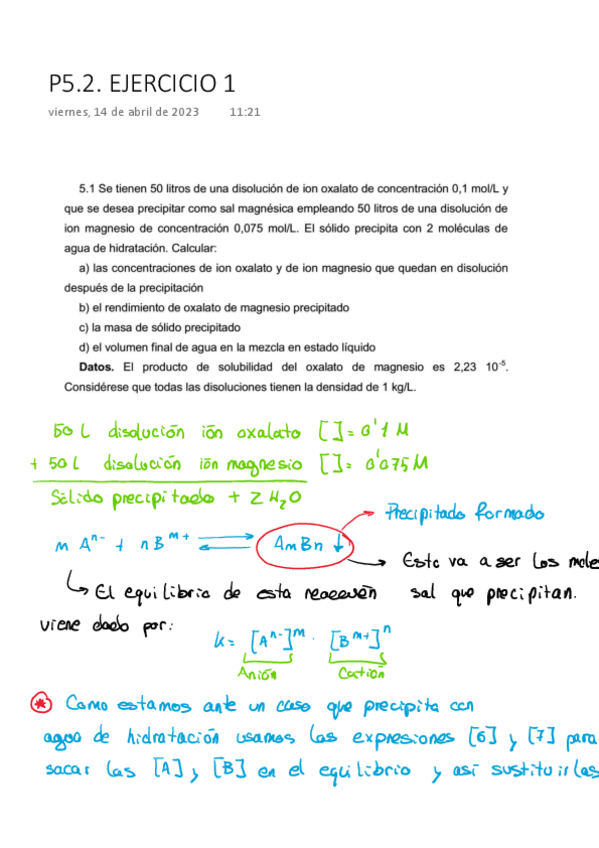 P5.2. EJERCICIO 1
viernes, 14 de abril de 2023 11:21
5.1 Se tienen 50 litros de una disolución de ion oxalato de concentración 0,1 mol/L y
que se desea precipitar como sal magnésica empleando 50 litros de una disolución de
ion magnesio de concentración 0,075 mol/L. El sólido precipita con 2 moléculas de
agua de hidratación. Calcular:
a) las concentraciones de ion oxalato y de ion magnesio que quedan en disolución
después de la precipitación
b) el rendimiento de oxalato de magnesio precipitado
c) la masa de sólido precipitado
d) el volumen final de agua en la mezcla en estado líquido
Datos. El producto de solubilidad del oxalato de magnesio es 2,23 10⁻⁵.
Considérese que todas las disoluciones tienen la densidad de 1 kg/L.
50 L disolución ión oxalato [ ] = 0'1 M
+ 50 L disolución ión magnesio [ ] = 0'075 M
Sólido precipitado + 2 H₂O
Precipitado formado
m Aⁿ⁻ + n Bᵐ⁺ ⇌ AmBn ↓
Esto va a ser los moles
El equilibrio de esta reacción sal que precipitan.
viene dado por:
k = [Aⁿ⁻]ᵐ · [Bᵐ⁺]ⁿ
Anión Catión
* Como estamos ante un caso que precipita con
agua de hidratación usamos las expresiones [6] y [7] para
sacar las [A] y [B] en el equilibrio y así sustituirlas